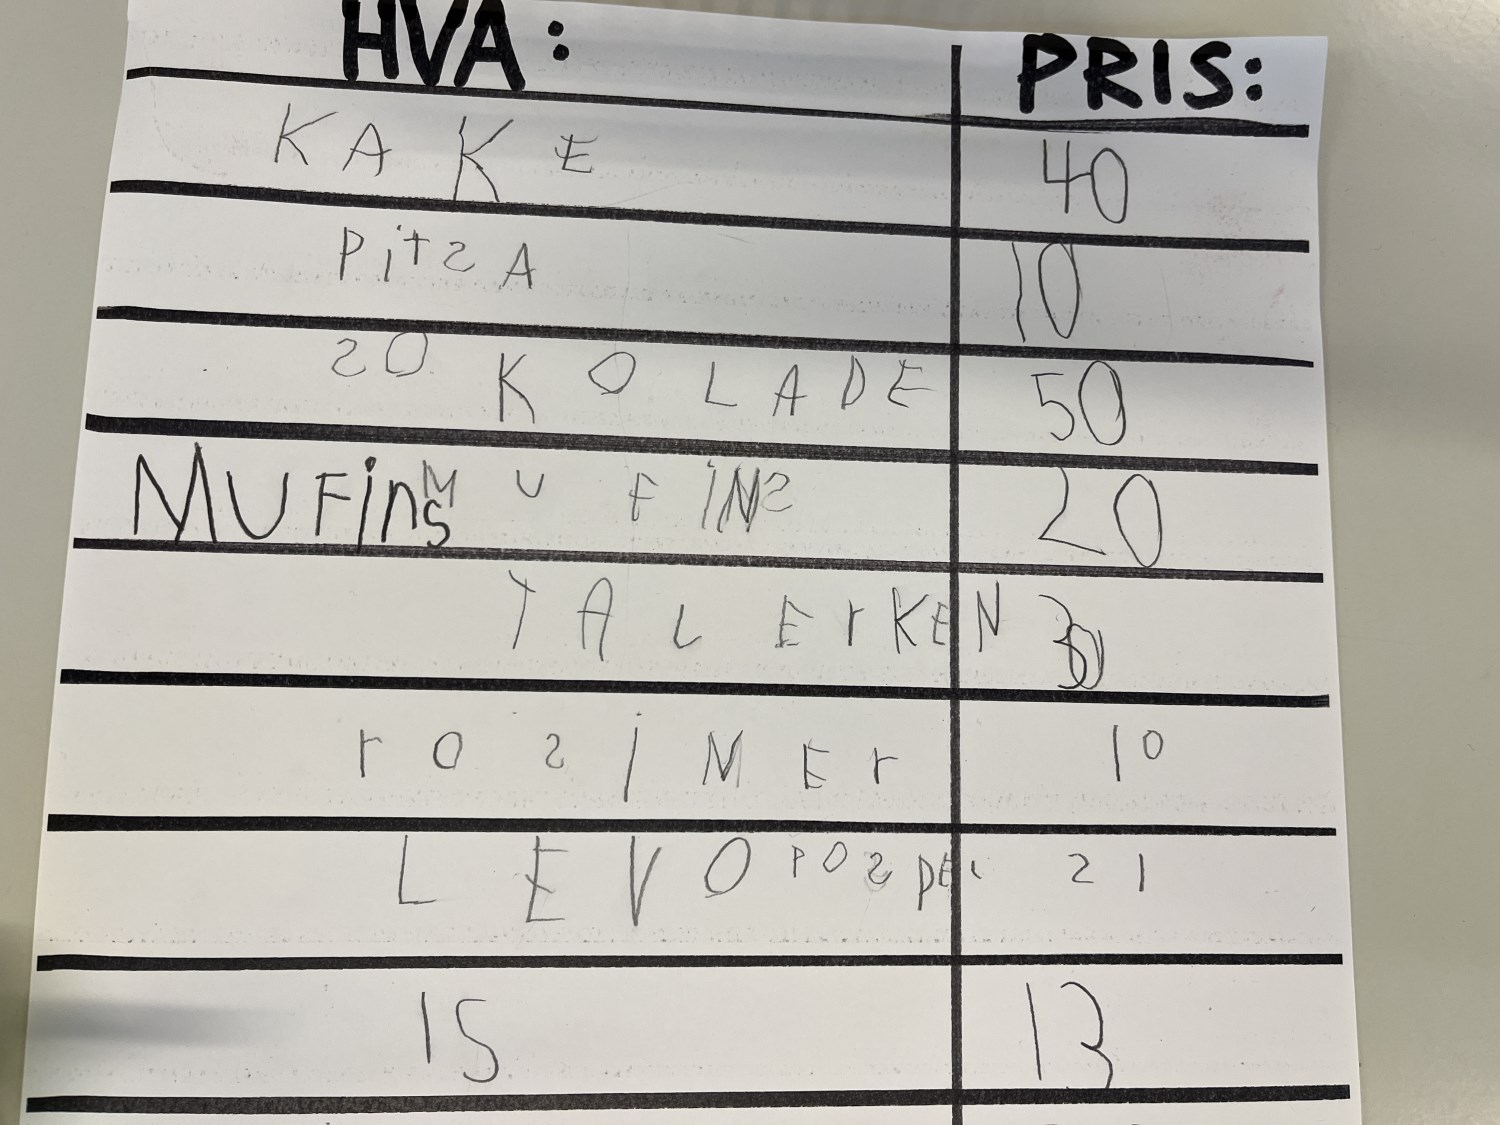 HVA: PRIS:
KAKE 40
PitSA 10
SOKOLADE 50
MUFins MUFINS 20
TALErKEN 30
rOSiMEr 10
LEVOPOSDEr 21
IS 13